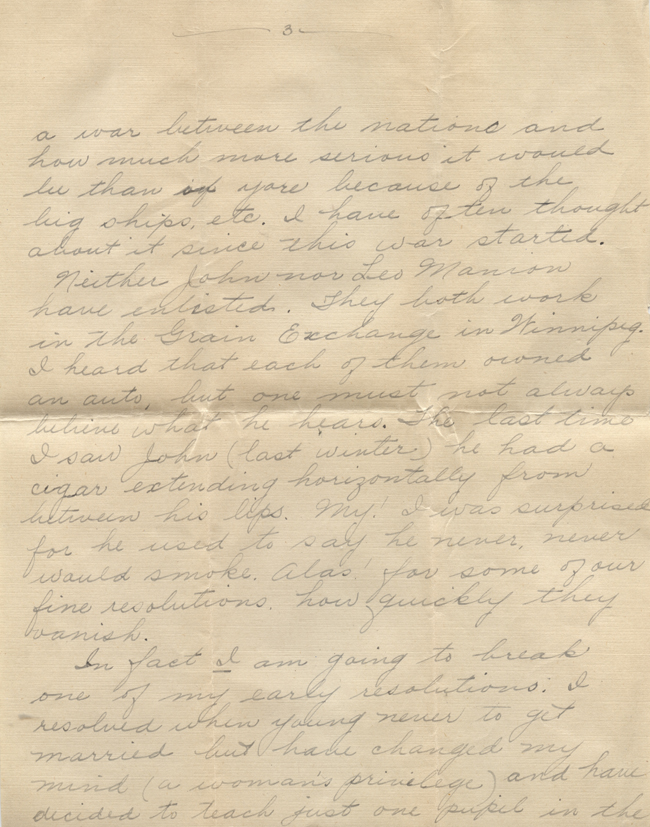 3
a war between the nations and
how much more serious it would
be than of yore because of the
big ships, etc. I have often thought
about it since this war started.
Neither John nor Leo Manion
have enlisted. They both work
in the Grain Exchange in Winnipeg.
I heard that each of them owned
an auto, but one must not always
believe what he hears. The last time
I saw John (last winter) he had a
cigar extending horizontally from
between his lips. My! I was surprised
for he used to say he never, never
would smoke. Alas! for some of our
fine resolutions. how quickly they
vanish.
In fact I am going to break
one of my early resolutions. I
resolved when young never to get
married but have changed my
mind (a woman's privilege) and have
decided to teach just one pupil in the